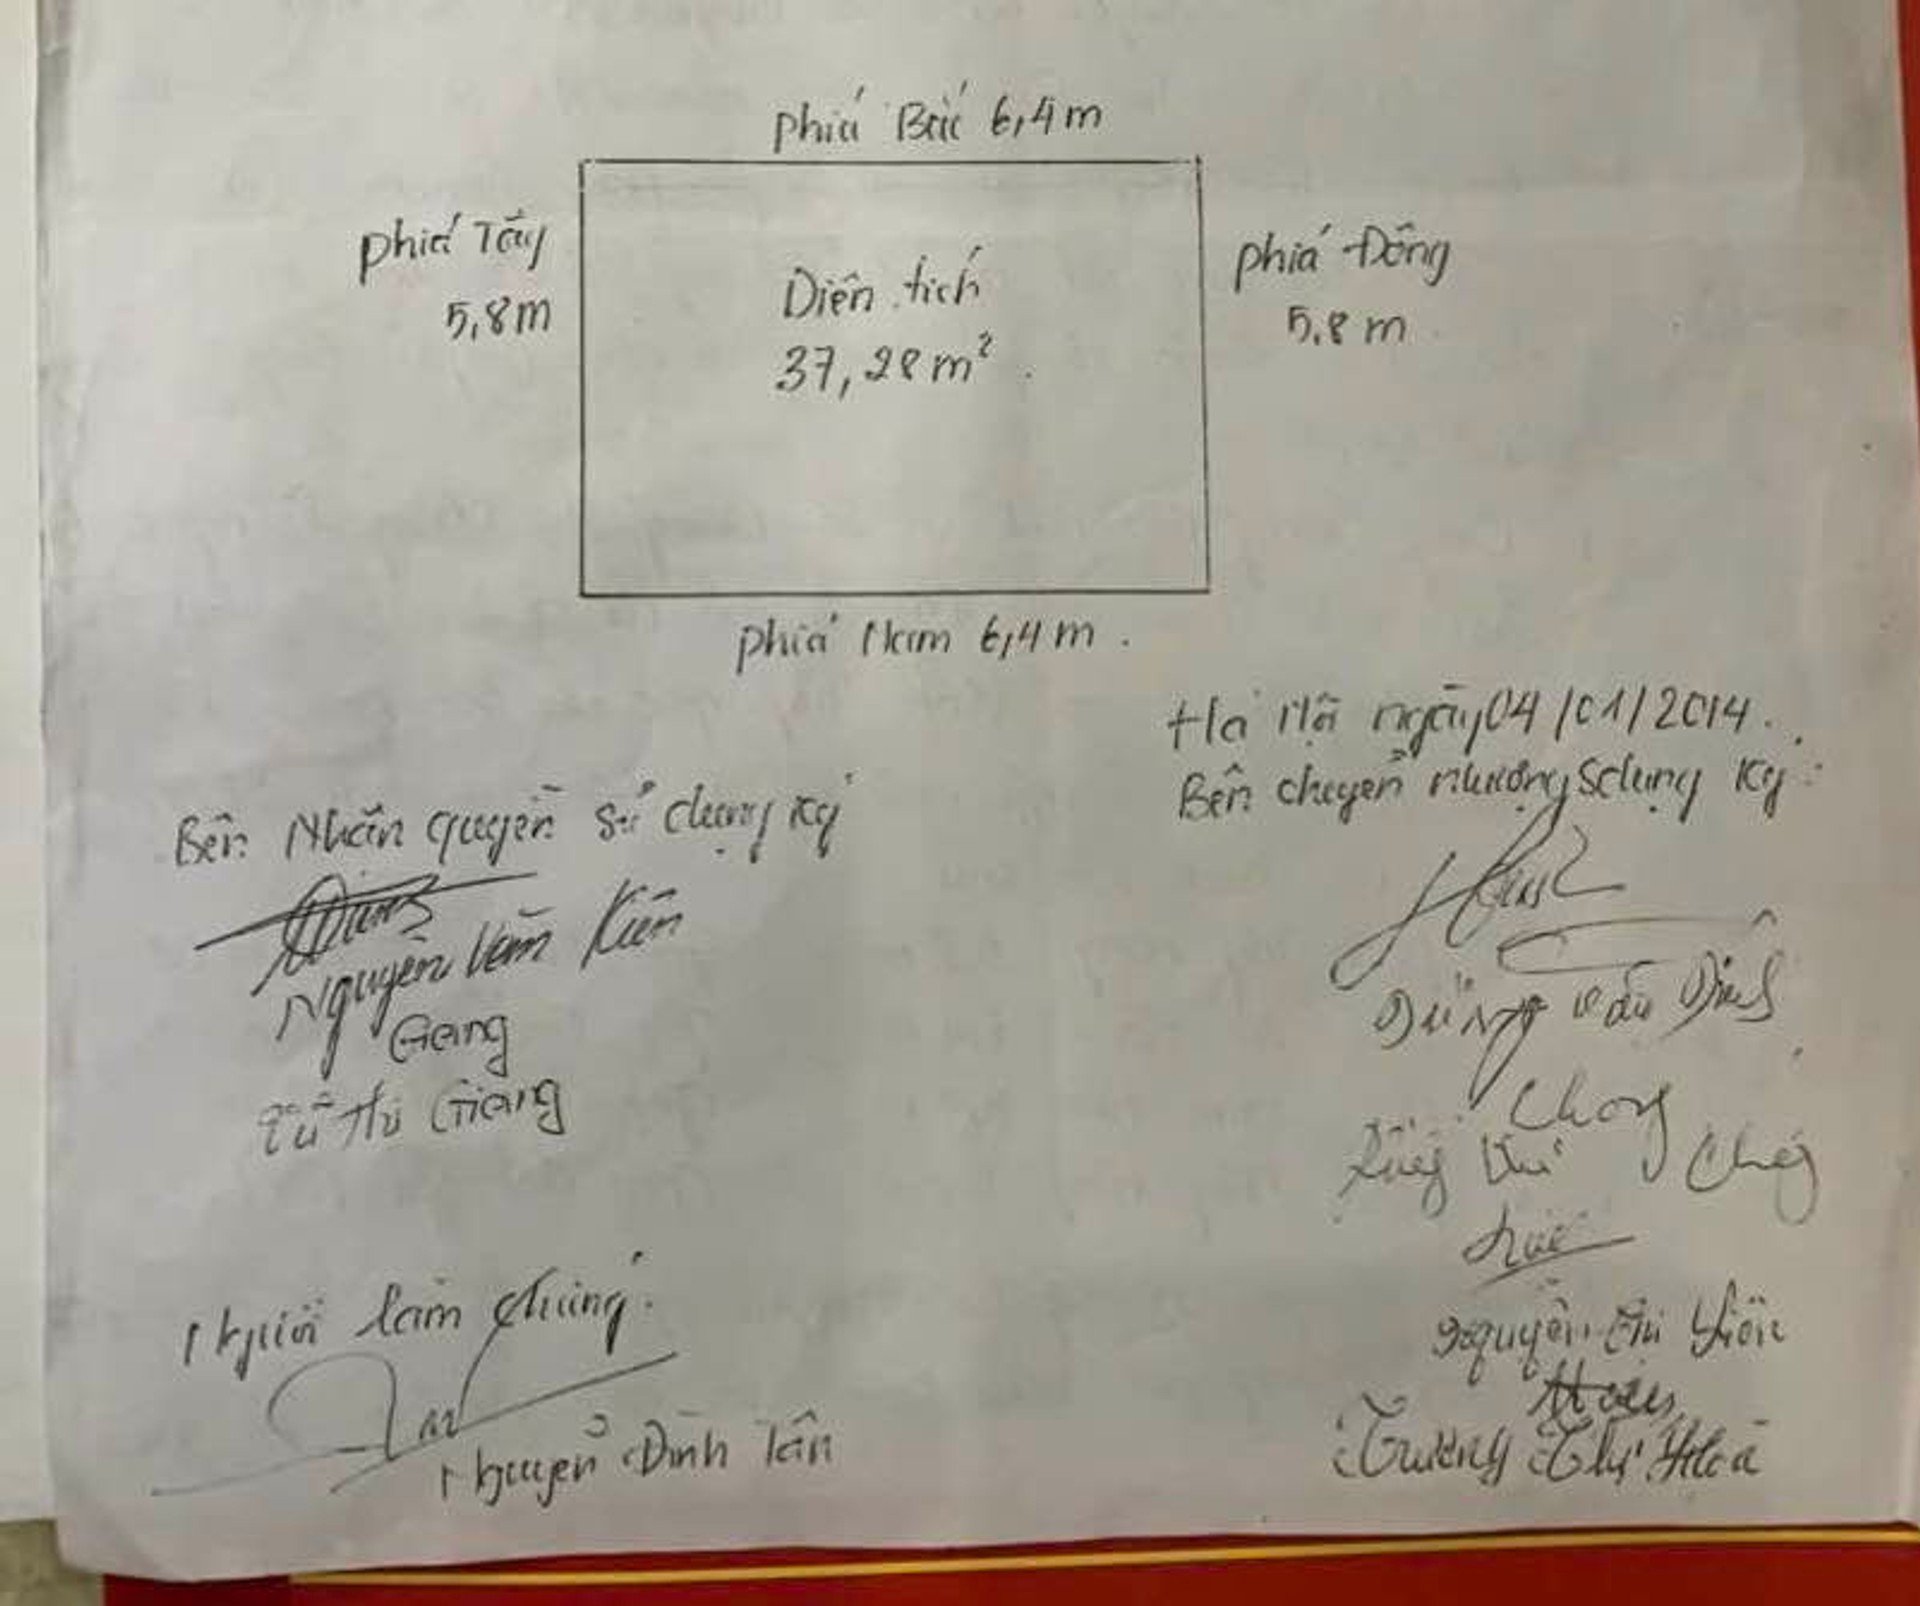 phía Bắc 6,4m
phía Tây
5,8m
Diện tích
37,28m²
phía Đông
5,8 m
phía Nam 6,4m.
Hà Nội ngày 04/01/2014.
Bên chuyển nhượng Sdụng ký:
Bên Nhận quyền sử dụng ký
Nguyễn Văn Kiên
Giang
Vũ Thị Giang
Chong
Nguyễn Thị
Trương Thị Hoa
Người làm chứng.
Nguyễn Đình Tân